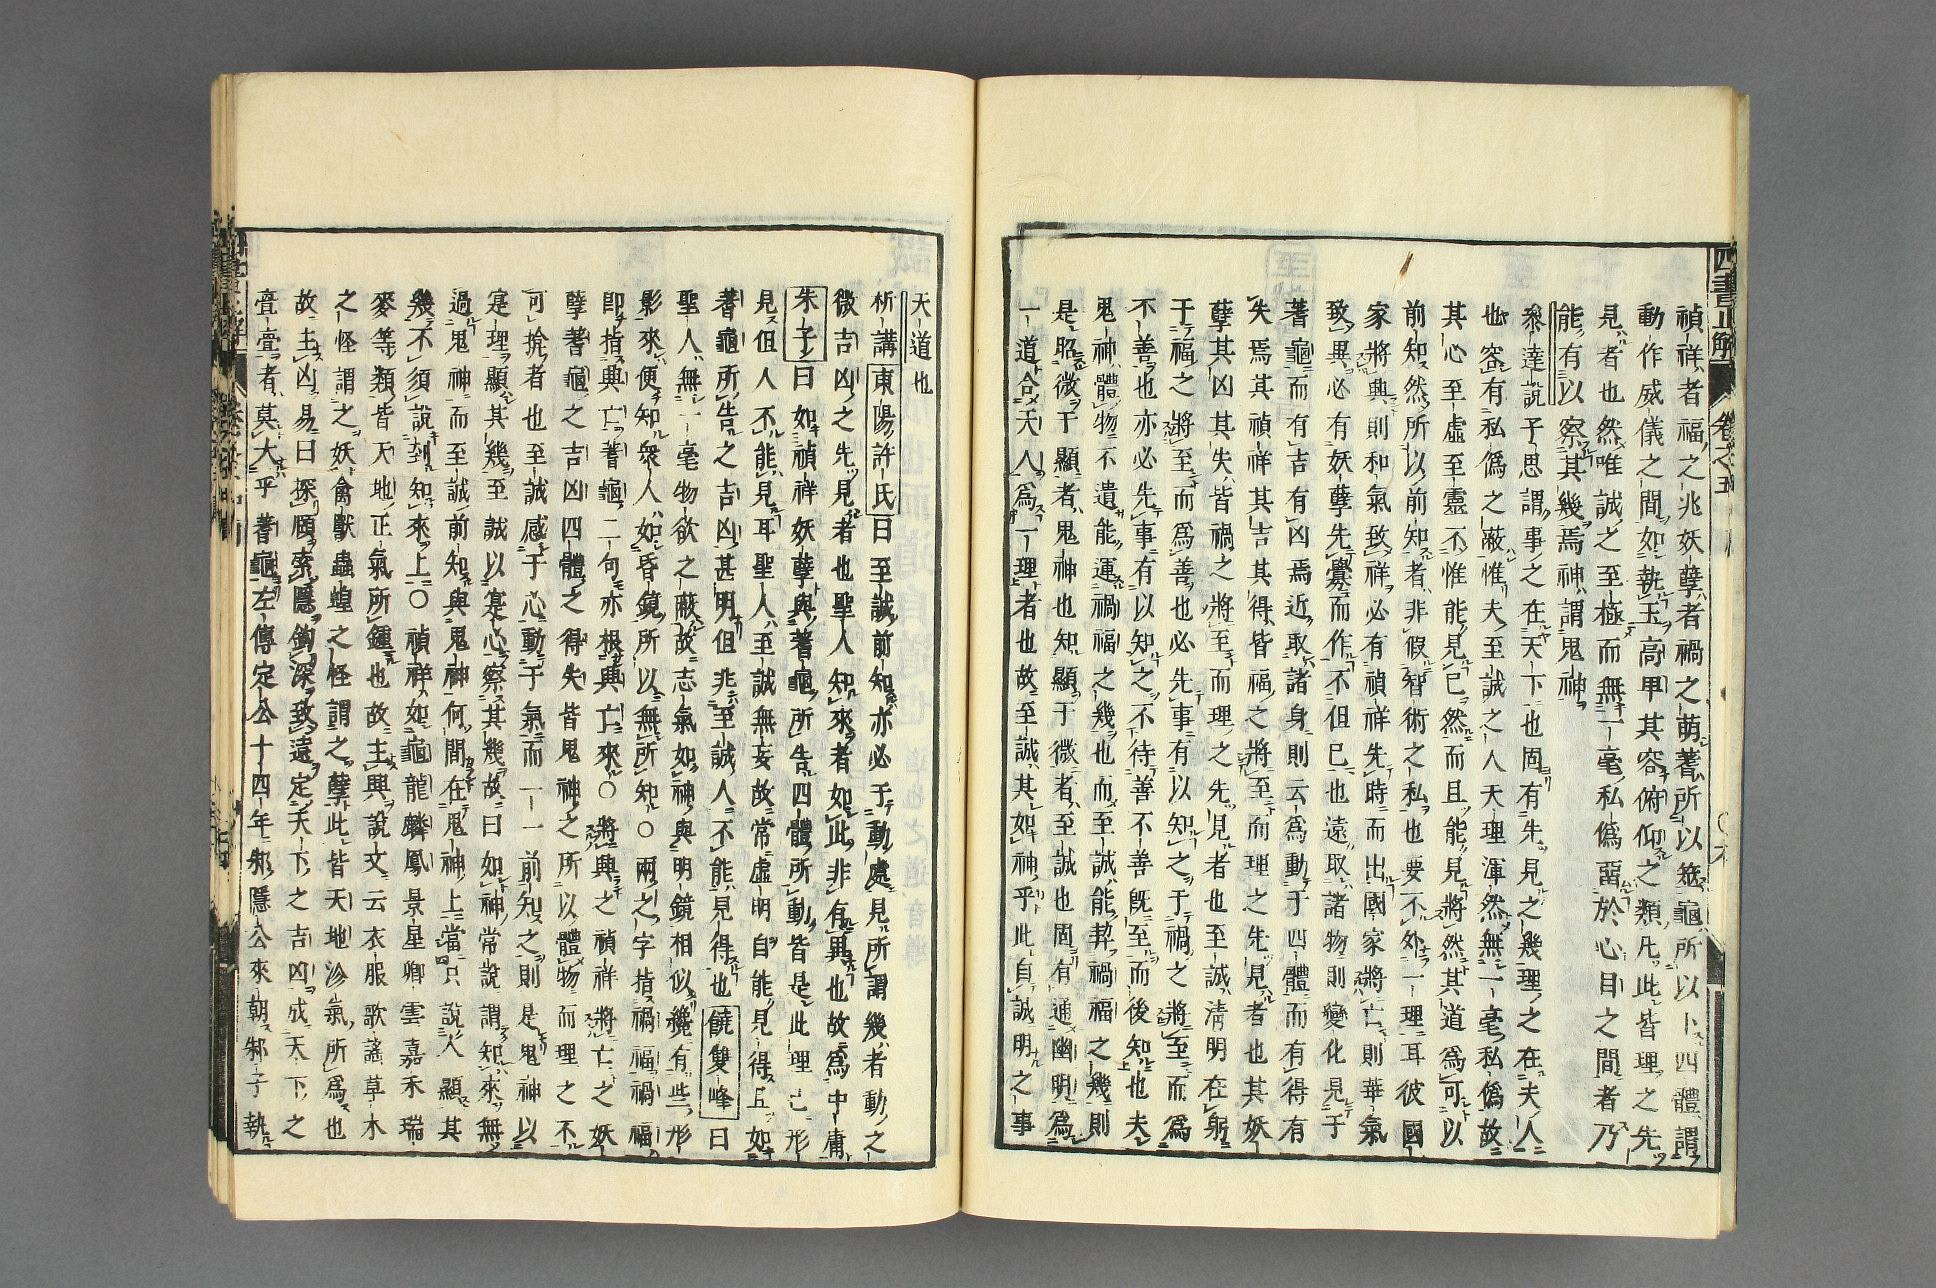 禎祥者福之兆妖孽者禍之萌蓍所以筮龜所以卜四體謂
動作威儀之間如執玉高卑其容俯仰之類凡此皆理之先
見者也然唯誠之至極而無一毫私僞留於心目之間者乃
能有以察其幾焉神謂鬼神
叅達説子思謂事之在天下也固有先見之幾理之在夫人
也容有私僞之蔽惟夫至誠之人天理渾然無一毫私僞故
其心至虛至靈不惟能見已然而且能見將然其道爲可以
前知然所以前知者非假智術之私也要不外一理耳彼國
家將興則和氣致祥必有禎祥先時而出國家將亡則華氣
致異必有妖孽先寡而作不但已也遠取諸物則變化見于
蓍龜而有吉有凶焉近取諸身則云爲動于四體而有得有
失焉其禎祥其吉其得皆福之將至而理之先見者也其妖
孽其凶其失皆禍之將至而理之先見者也至誠清明在躬
于福之將至而爲善也必先事有以知之于禍之將至而爲
不善也亦必先事有以知之不待善不善既至而後知也夫
鬼神體物不遺能運禍福之幾也而至誠能契禍福之幾則
是昭微于顯者鬼神也知顯于微者至誠也固有通幽明爲
一道合天人爲一理者也故至誠其如神乎此自誠明之事
天道也
析講東陽許氏曰至誠前知亦必于動處見所謂幾者動之
微吉凶之先見者也聖人知來者如此非有異也故爲中庸
朱子曰如禎祥妖孽與蓍龜所告四體所動皆是此理已形
見但人不能見耳聖人至誠無妄故常虛明自能見得且如
蓍龜所告之吉凶甚明但非至誠人不能見得也饒雙峰曰
聖人無一毫物欲之蔽故志氣如神與明鏡相似纔有些形
影來便知衆人如昏鏡所以無所知○兩之字指禍福禍福
即指興亡蓍龜二句亦根興亡來○將興之禎祥將亡之妖
孽蓍龜之吉凶四體之得失皆鬼神之所以體物而理之不
可掩者也至誠感于心動于氣而一一前知之則是鬼神以
寔理顯其幾至誠以寔心察其幾故曰如神常說謂知來無
過鬼神而至誠前知與鬼神何間在鬼神上當只說人顯其
幾不須說到知來上○禎祥如龜龍麟鳳景星卿雲嘉禾瑞
麥等類皆天地正氣所鍾也故主興說文云衣服歌謠草木
之怪謂之妖禽獸蟲蝗之怪謂之孽此皆天地沴氣所爲也
故主凶易曰探賾索隱鉤深致遠定天下之吉凶成天下之
亹亹者莫大乎蓍龜左傳定公十四年邾隱公來朝邾子執
四書正解
卷之五